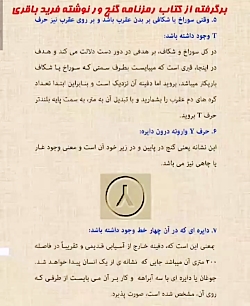 برگرفته از کتاب رمزنامه گنج ور نوشته فرید باقری
۵. وقتی سوراخ یا شکافی بر بدن عقرب باشد و بر روی عقرب نیز حرف
T وجود داشته باشد:
در کل سوراخ و شکاف، بر هدفی در دور دست دلالت می کند و هدف
در اینجا، قبری است که میبایست بطرف سمتی که سوراخ یا شکاف
باریکتر میباشد، بروید اما دفینه آن نزدیک است و بنابراین ابتدا تعداد
گره های دم عقرب را بشمارید و با تبدیل آن به متر، به سمت پایه بلندتر
حرف T بروید
۶. حرف Y وارونه درون دایره:
این نشانه یعنی گنج در پایین و در زیر خود آن است و معنی وجود غار
یا چاهی نیز می باشد.
۷. دایره ای که در آن چهار خط وجود داشته باشد:
بمعنی این است که، دفینه خارج از آسیابی قدیمی و تقریباً در فاصله
۳۰۰ متری آن میباشد جایی که نشانه ی از یک انسان پیدا خواهد شد.
جوغان یا دایره ای با سه آبراهه و کار بر آن می بایست از طرفی که
روی آن، مشخص شده است، صورت پذیرد.